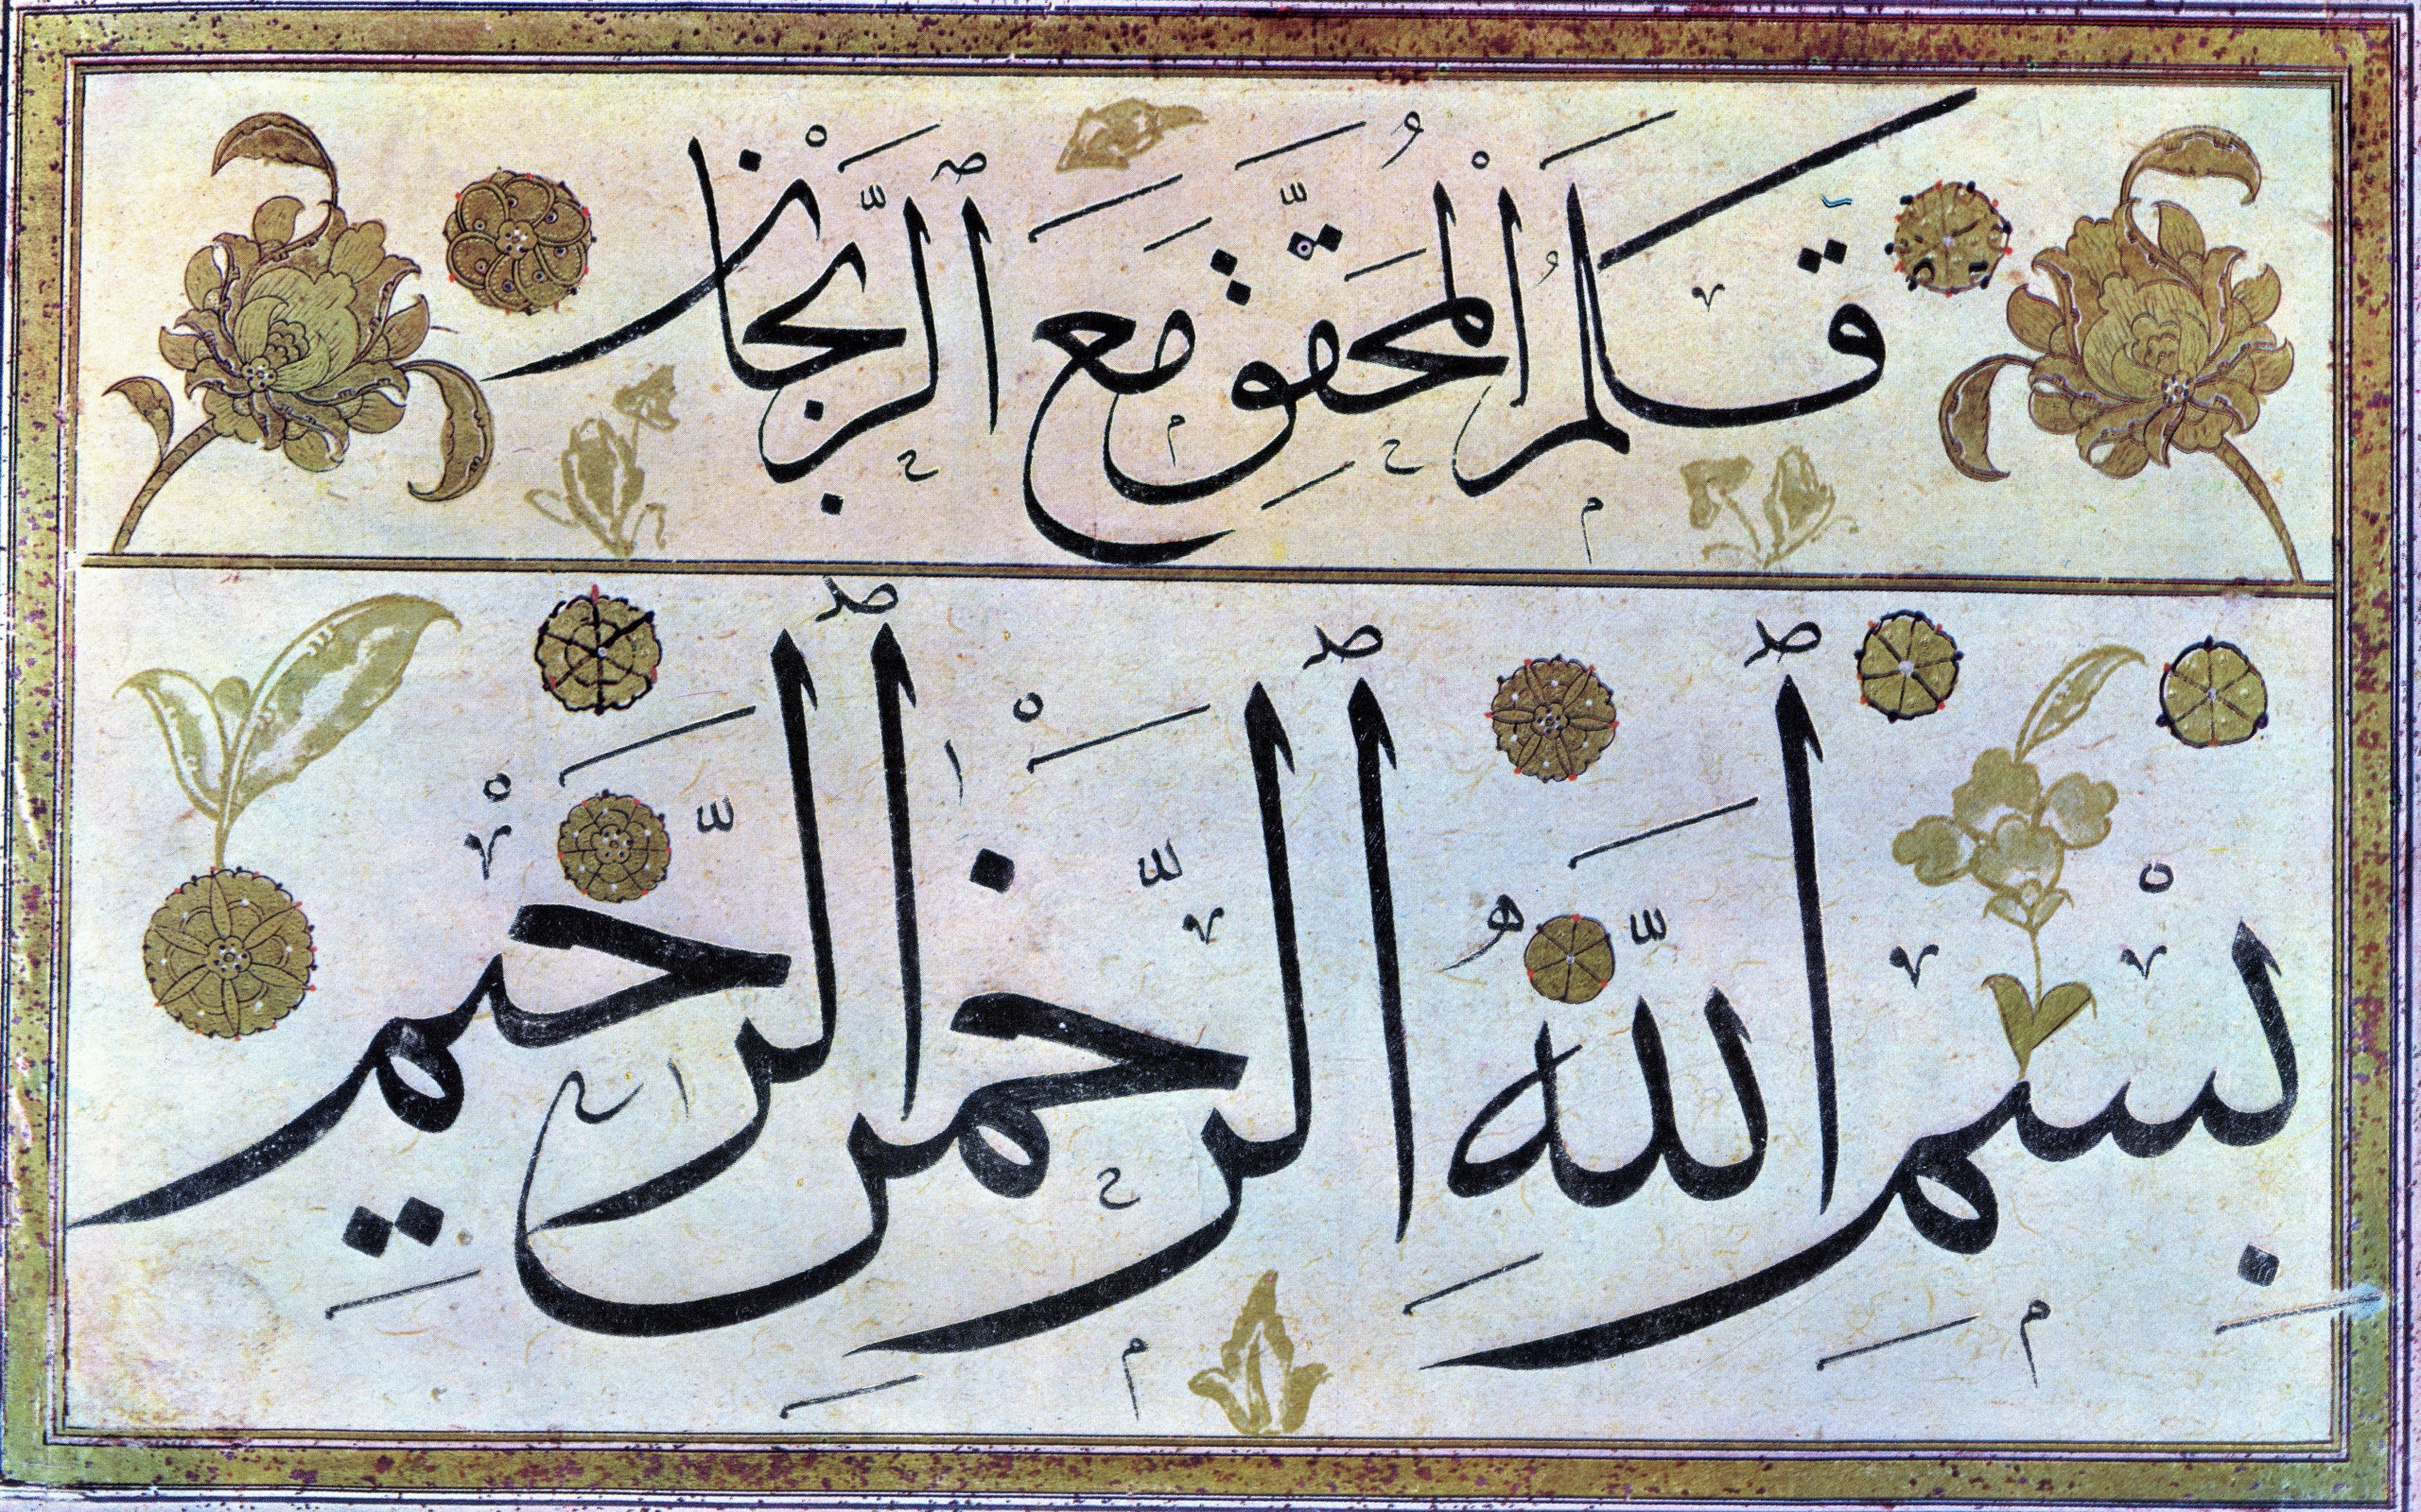 قَلَمُ الْمُحَقَّقِ مَعَ ٱلرَّيْحَانْ
بِسْمِ ٱللَّهِ ٱلرَّحْمَنِ ٱلرَّحِيْمِ